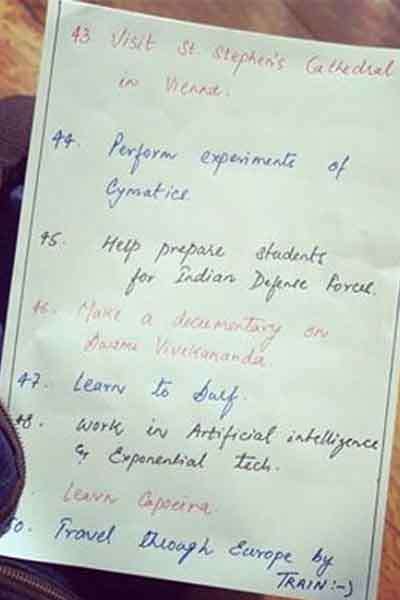 43 Visit St Stephen's Cathedral
in Vienna.
44. Perform experiments of
Cymatics
45. Help prepare students
for Indian Defense Forces.
46. Make a documentary on
Swami Vivekananda.
47. Learn to Surf.
48. Work in Artificial intelligence
& Exponential tech.
Learn Capoeira.
50. Travel through Europe by
TRAIN :-)